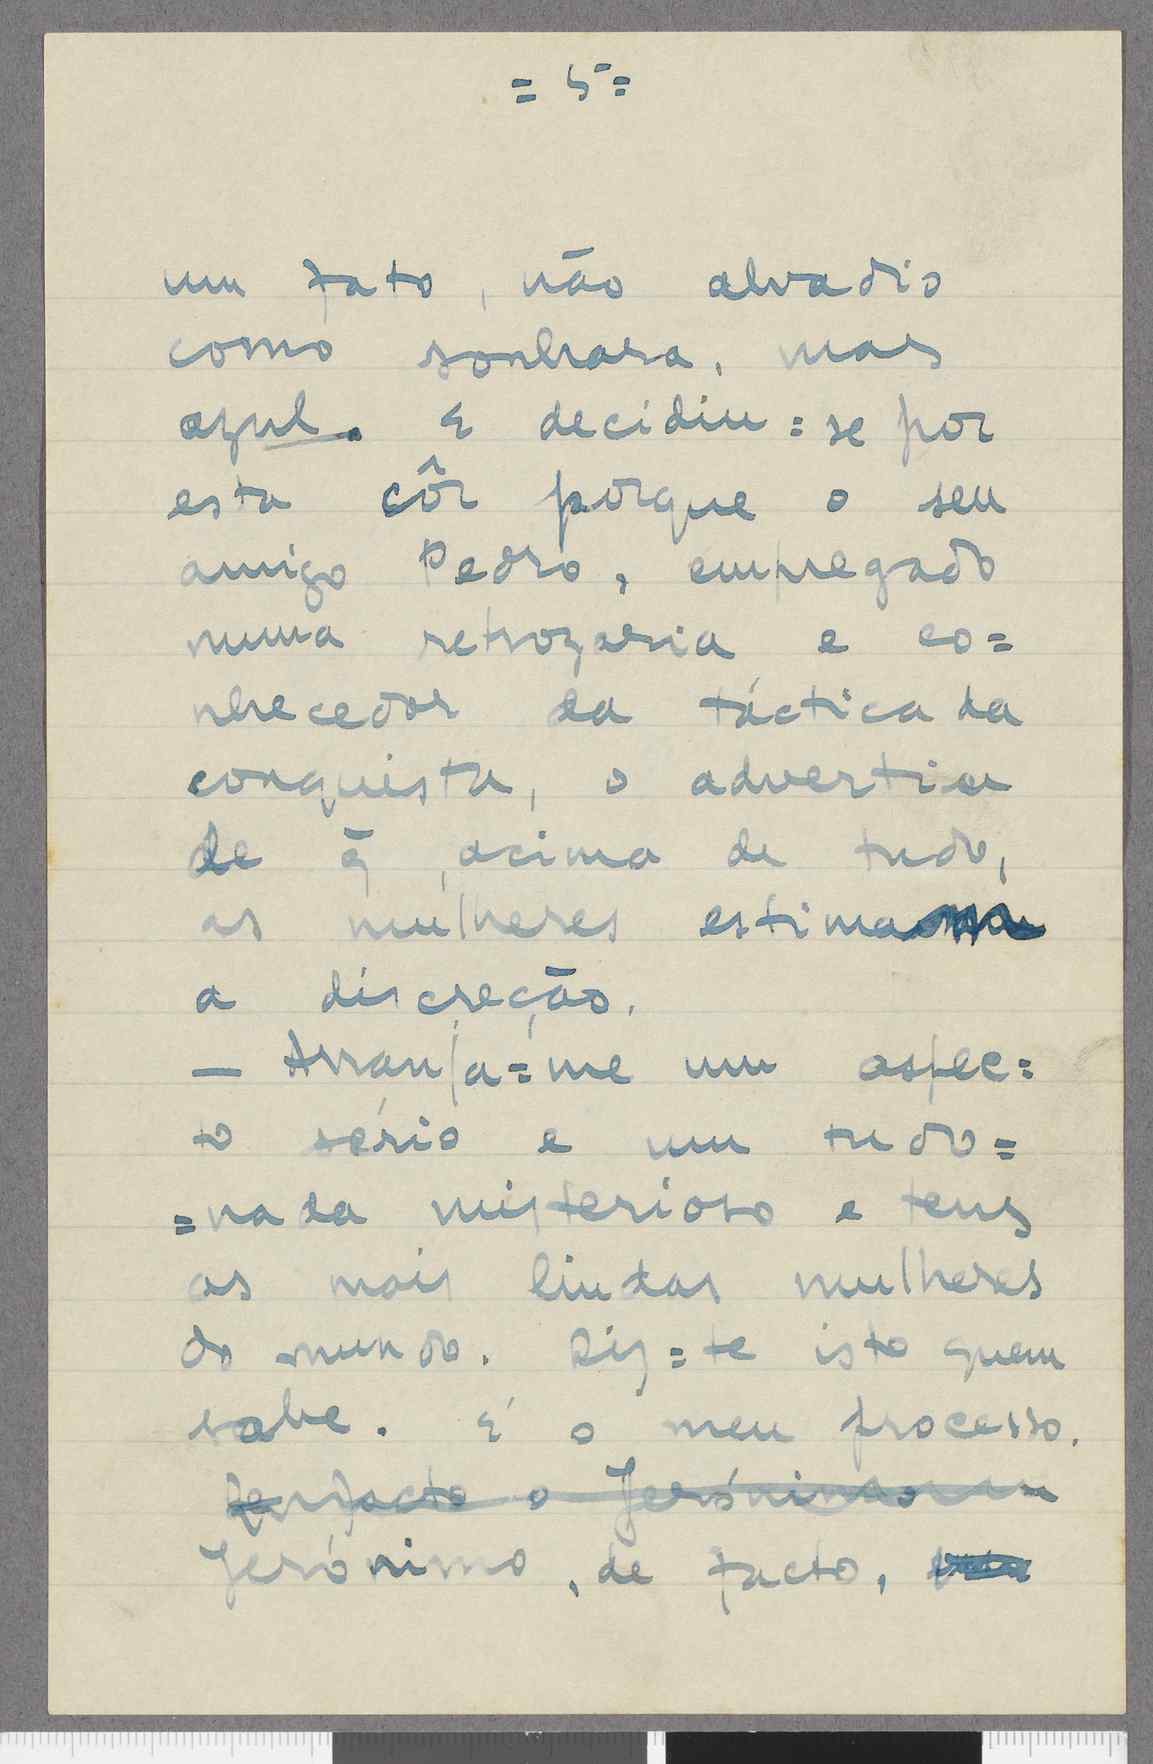 = 5 =
um fato, não alvadio
como sonhara, mas
azul. E decidiu=se por
esta côr porque o seu
amigo Pedro, empregado
numa retrozaria e co=
nhecedor da táctica da
conquista, o advertiu
de q̃, acima de tudo,
as mulheres estima
a discreção.
— Arranja=me um aspec=
to sério e um tudo=
=nada misterioso e tens
as mais lindas mulheres
do mundo. Diz=te isto quem
sabe. É o meu processo.
De facto o Jerónimo
Jerónimo, de facto,